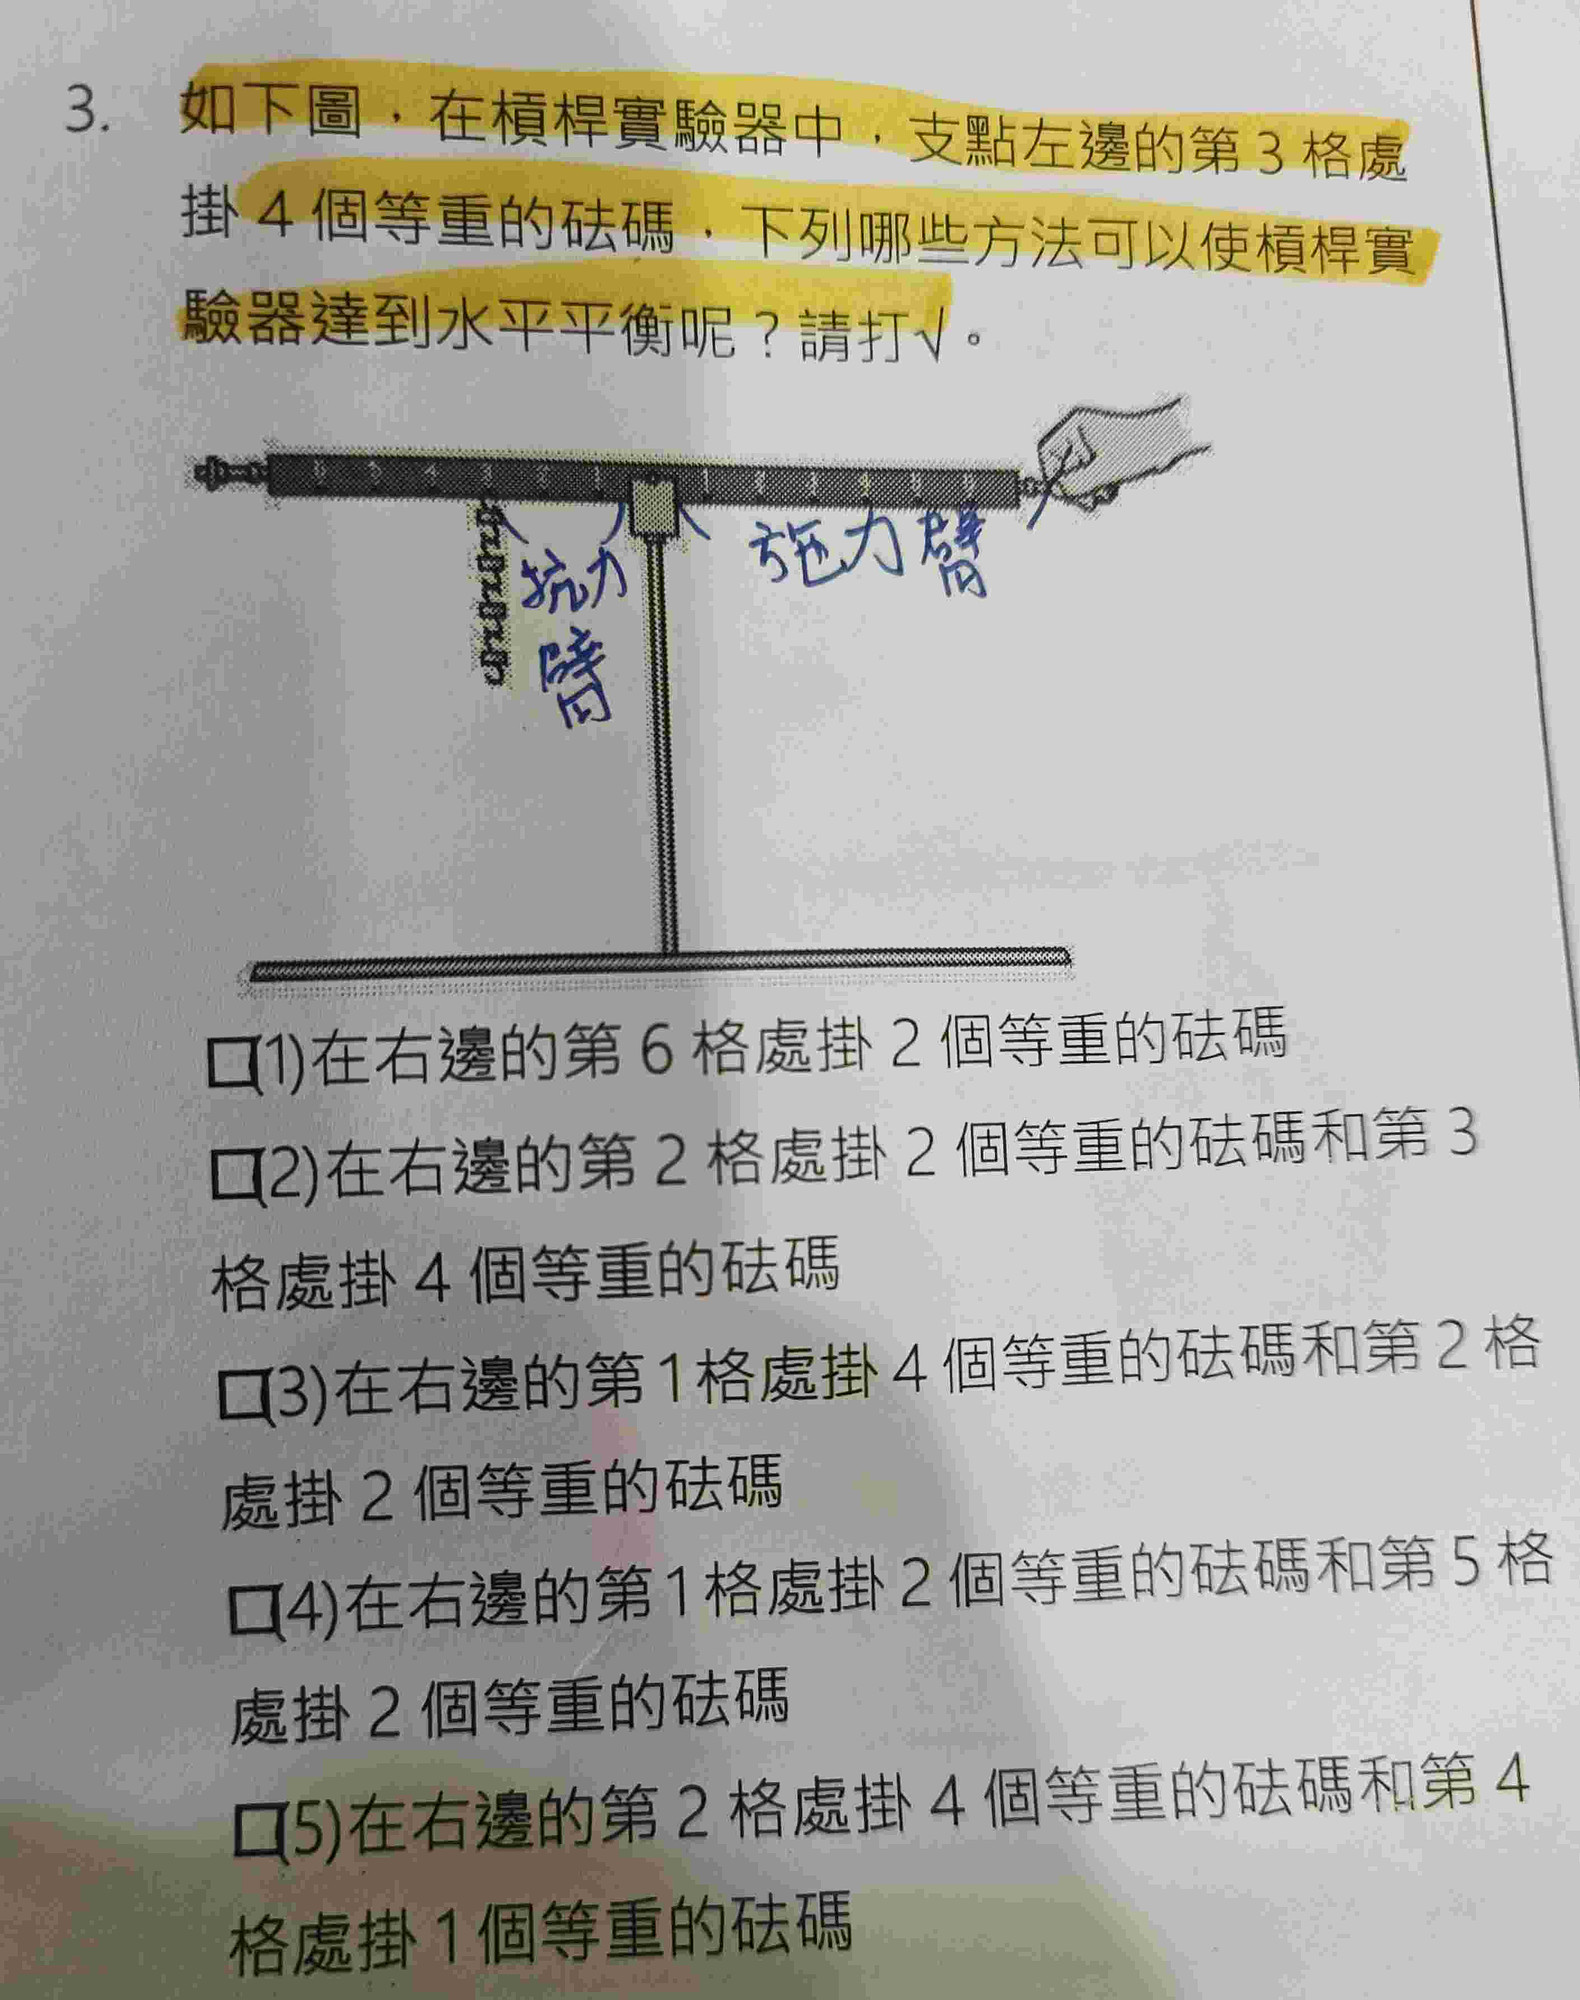 3. 如下圖，在槓桿實驗器中，支點左邊的第3格處
掛4個等重的砝碼，下列哪些方法可以使槓桿實
驗器達到水平平衡呢？請打√。
抗力
臂
施力臂
□(1)在右邊的第6格處掛2個等重的砝碼
□(2)在右邊的第2格處掛2個等重的砝碼和第3
格處掛4個等重的砝碼
□(3)在右邊的第1格處掛4個等重的砝碼和第2格
處掛2個等重的砝碼
□(4)在右邊的第1格處掛2個等重的砝碼和第5格
處掛2個等重的砝碼
□(5)在右邊的第2格處掛4個等重的砝碼和第4
格處掛1個等重的砝碼